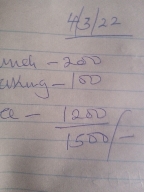 4/3/22
unch - 200
ashing - 100
ce - 1200
1500/-